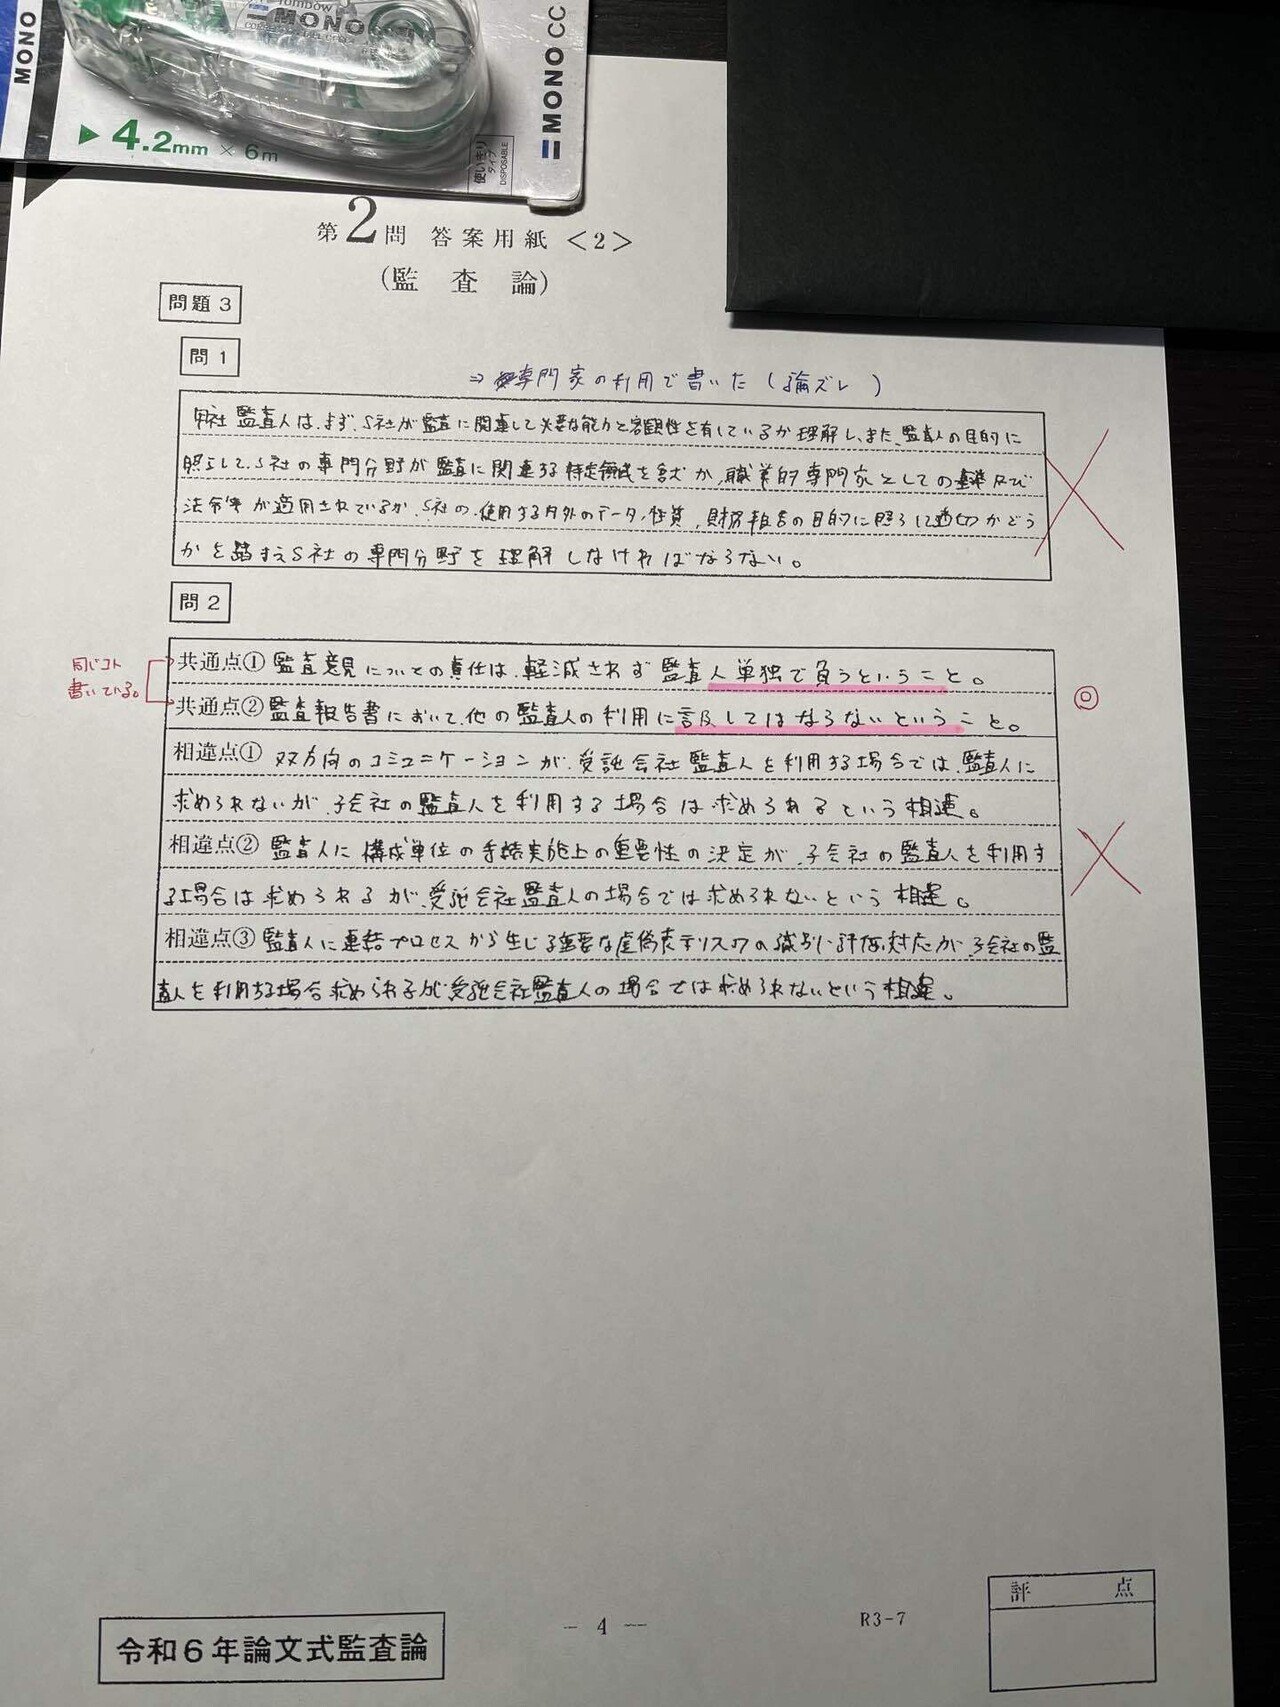 MONO
Tombow
MONO
4.2mm × 6m
使いきり
タイプ
DISPOSABLE
MONO CC
第2問 答案用紙<2>
(監査論)
問題3
問1
⇒専門家の利用で書いた(論ズレ)
監査人は、まず、S社が監査に関連して必要な能力と客観性を有しているか理解し、また、監査人の目的に
照らして、S社の専門分野が監査に関連する特定領域を含むか、職業的専門家としての基準及び
法令等が適用されているか、S社の使用する内外のデータの性質、財務報告の目的に照らし適切かどう
かを踏まえS社の専門分野を理解しなければならない。
問2
同じコト
書いている。
共通点① 監査意見についての責任は、軽減されず監査人単独で負うということ。
共通点② 監査報告書において、他の監査人の利用に言及してはならないということ。
相違点① 双方向のコミュニケーションが、受託会社監査人を利用する場合では、監査人に
求められないが、子会社の監査人を利用する場合は求められるという相違。
相違点② 監査人に構成単位の手続実施上の重要性の決定が、子会社の監査人を利用す
る場合は求められるが、受託会社監査人の場合では求められないという相違。
相違点③ 監査人に連結プロセスから生じる重要な虚偽表示リスクの識別、評価、対応が、子会社の監
査人を利用する場合求められるが、受託会社監査人の場合では求められないという相違。
令和6年論文式監査論
- 4 -
R3-7
評点